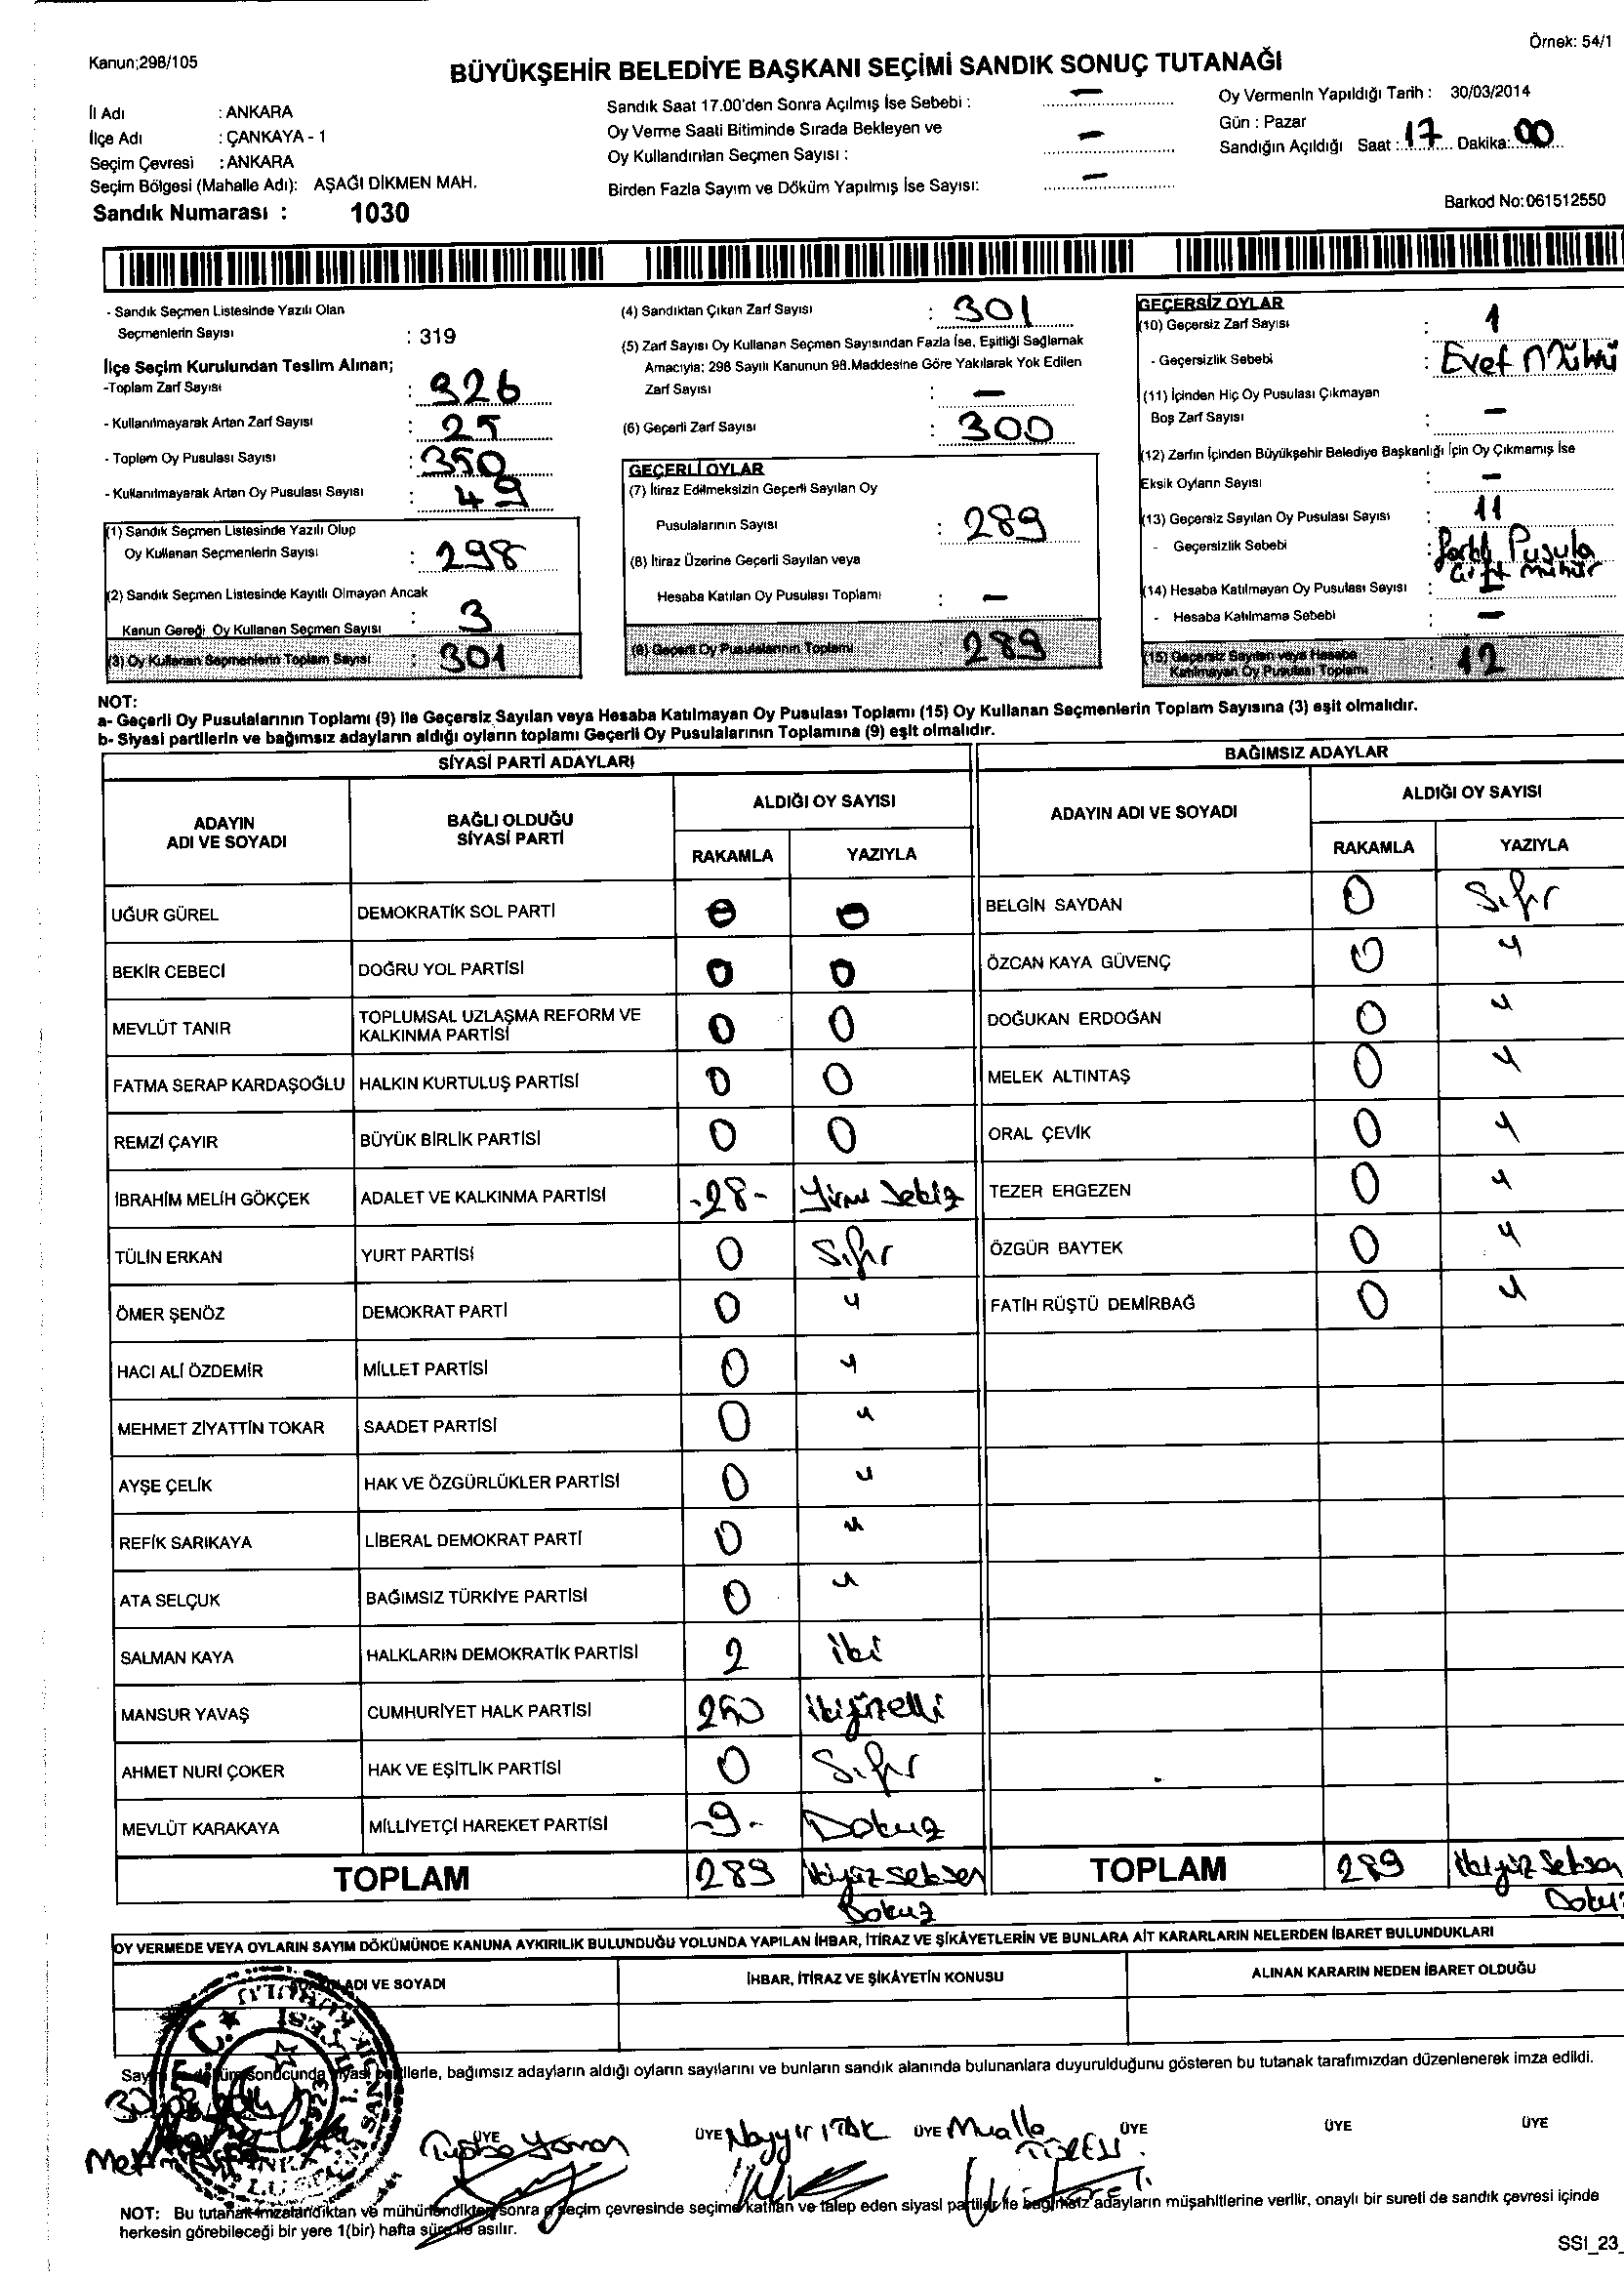 Kanun;298/105
Örnek: 54/1
BÜYÜKŞEHİR BELEDİYE BAŞKANI SEÇİMİ SANDIK SONUÇ TUTANAĞI
İl Adı : ANKARA
İlçe Adı : ÇANKAYA - 1
Seçim Çevresi : ANKARA
Seçim Bölgesi (Mahalle Adı): AŞAĞI DİKMEN MAH.
Sandık Numarası : 1030
Sandık Saat 17.00'den Sonra Açılmış İse Sebebi : —
Oy Verme Saati Bitiminde Sırada Bekleyen ve
Oy Kullandırılan Seçmen Sayısı : —
Birden Fazla Sayım ve Döküm Yapılmış İse Sayısı: —
Oy Vermenin Yapıldığı Tarih : 30/03/2014
Gün : Pazar
Sandığın Açıldığı Saat : 17 Dakika: 00
Barkod No:061512550
- Sandık Seçmen Listesinde Yazılı Olan
Seçmenlerin Sayısı : 319
İlçe Seçim Kurulundan Teslim Alınan;
-Toplam Zarf Sayısı : 326
- Kullanılmayarak Artan Zarf Sayısı : 25
- Toplam Oy Pusulası Sayısı : 350
- Kullanılmayarak Artan Oy Pusulası Sayısı : 49
(1) Sandık Seçmen Listesinde Yazılı Olup
Oy Kullanan Seçmenlerin Sayısı : 298
(2) Sandık Seçmen Listesinde Kayıtlı Olmayan Ancak
Kanun Gereği Oy Kullanan Seçmen Sayısı : 3
(3) Oy Kullanan Seçmenlerin Toplam Sayısı : 301
(4) Sandıktan Çıkan Zarf Sayısı : 301
(5) Zarf Sayısı Oy Kullanan Seçmen Sayısından Fazla İse, Eşitliği Sağlamak
Amacıyla; 298 Sayılı Kanunun 98.Maddesine Göre Yakılarak Yok Edilen
Zarf Sayısı : —
(6) Geçerli Zarf Sayısı : 300
GEÇERLİ OYLAR
(7) İtiraz Edilmeksizin Geçerli Sayılan Oy
Pusulalarının Sayısı : 289
(8) İtiraz Üzerine Geçerli Sayılan veya
Hesaba Katılan Oy Pusulası Toplamı : —
(9) Geçerli Oy Pusulalarının Toplamı 289
GEÇERSİZ OYLAR
(10) Geçersiz Zarf Sayısı : 1
- Geçersizlik Sebebi : Evet Mühü
(11) İçinden Hiç Oy Pusulası Çıkmayan
Boş Zarf Sayısı : —
(12) Zarfın İçinden Büyükşehir Belediye Başkanlığı İçin Oy Çıkmamış İse
Eksik Oyların Sayısı : —
(13) Geçersiz Sayılan Oy Pusulası Sayısı : 11
- Geçersizlik Sebebi : Farklı Pusula
Çift mühür
(14) Hesaba Katılmayan Oy Pusulası Sayısı : —
- Hesaba Katılmama Sebebi : —
(15) Geçersiz Sayılan veya Hesaba
Katılmayan Oy Pusulası Toplamı : 12
NOT:
a- Geçerli Oy Pusulalarının Toplamı (9) ile Geçersiz Sayılan veya Hesaba Katılmayan Oy Pusulası Toplamı (15) Oy Kullanan Seçmenlerin Toplam Sayısına (3) eşit olmalıdır.
b- Siyasi partilerin ve bağımsız adayların aldığı oyların toplamı Geçerli Oy Pusulalarının Toplamına (9) eşit olmalıdır.
SİYASİ PARTİ ADAYLARI
BAĞIMSIZ ADAYLAR
ADAYIN ADI VE SOYADI BAĞLI OLDUĞU SİYASİ PARTİ ALDIĞI OY SAYISI RAKAMLA YAZIYLA
ADAYIN ADI VE SOYADI ALDIĞI OY SAYISI RAKAMLA YAZIYLA
UĞUR GÜREL DEMOKRATİK SOL PARTİ 0 0 BELGİN SAYDAN 0 Sıfır
BEKİR CEBECİ DOĞRU YOL PARTİSİ 0 0 ÖZCAN KAYA GÜVENÇ 0 "
MEVLÜT TANIR TOPLUMSAL UZLAŞMA REFORM VE KALKINMA PARTİSİ 0 0 DOĞUKAN ERDOĞAN 0 "
FATMA SERAP KARDAŞOĞLU HALKIN KURTULUŞ PARTİSİ 0 0 MELEK ALTINTAŞ 0 "
REMZİ ÇAYIR BÜYÜK BİRLİK PARTİSİ 0 0 ORAL ÇEVİK 0 "
İBRAHİM MELİH GÖKÇEK ADALET VE KALKINMA PARTİSİ -28- Yirmi Sekiz TEZER ERGEZEN 0 "
TÜLİN ERKAN YURT PARTİSİ 0 Sıfır ÖZGÜR BAYTEK 0 "
ÖMER ŞENÖZ DEMOKRAT PARTİ 0 " FATİH RÜŞTÜ DEMİRBAĞ 0 "
HACI ALİ ÖZDEMİR MİLLET PARTİSİ 0 "
MEHMET ZİYATTİN TOKAR SAADET PARTİSİ 0 "
AYŞE ÇELİK HAK VE ÖZGÜRLÜKLER PARTİSİ 0 "
REFİK SARIKAYA LİBERAL DEMOKRAT PARTİ 0 "
ATA SELÇUK BAĞIMSIZ TÜRKİYE PARTİSİ 0 "
SALMAN KAYA HALKLARIN DEMOKRATİK PARTİSİ 2 iki
MANSUR YAVAŞ CUMHURİYET HALK PARTİSİ 250 ikiyüzelli
AHMET NURİ ÇOKER HAK VE EŞİTLİK PARTİSİ 0 Sıfır
MEVLÜT KARAKAYA MİLLİYETÇİ HAREKET PARTİSİ -9- Dokuz
TOPLAM 289 ikiyüz seksen Dokuz TOPLAM 289 ikiyüz Seksen Dokuz
OY VERMEDE VEYA OYLARIN SAYIM DÖKÜMÜNDE KANUNA AYKIRILIK BULUNDUĞU YOLUNDA YAPILAN İHBAR, İTİRAZ VE ŞİKÂYETLERİN VE BUNLARA AİT KARARLARIN NELERDEN İBARET BULUNDUKLARI
ADI VE SOYADI İHBAR, İTİRAZ VE ŞİKÂYETİN KONUSU ALINAN KARARIN NEDEN İBARET OLDUĞU
sonucunda siyasi partilerle, bağımsız adayların aldığı oyların sayılarını ve bunların sandık alanında bulunanlara duyurulduğunu gösteren bu tutanak tarafımızdan düzenlenerek imza edildi.
ÜYE ÜYE ÜYE Mualla ÜYE ÜYE ÜYE
NOT: Bu tutanak imzalandıktan ve mühürlendikten sonra seçim çevresinde seçime katılan ve talep eden siyasi partiler ile bağımsız adayların müşahitlerine verilir, onaylı bir sureti de sandık çevresi içinde
herkesin görebileceği bir yere 1(bir) hafta süre ile asılır.
SSI_23_